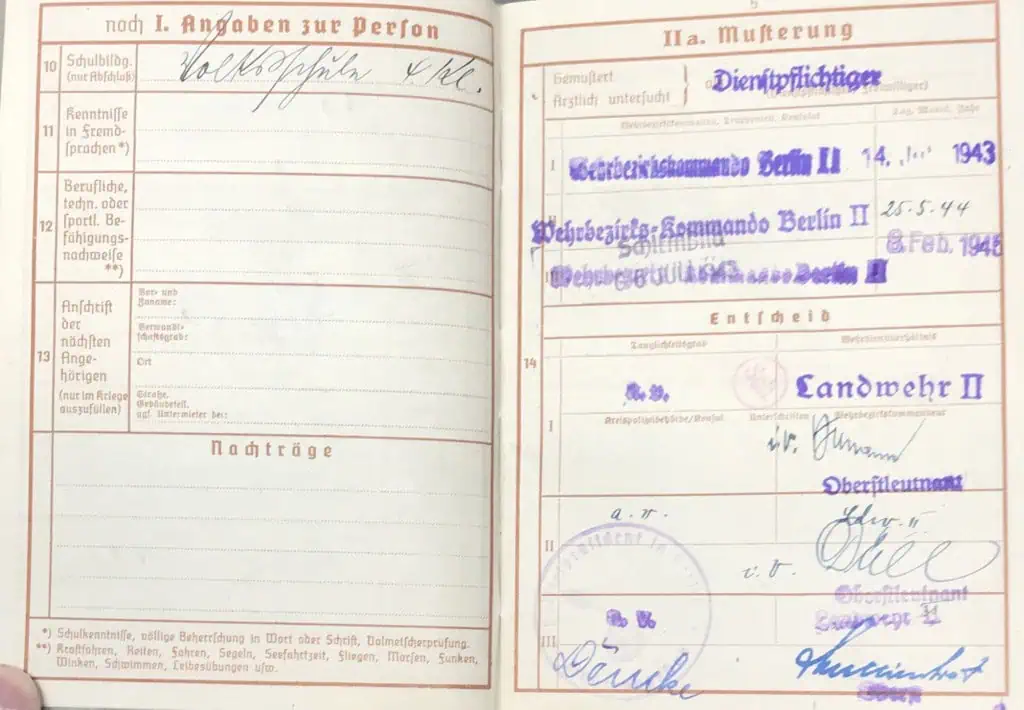 noch I. Angaben zur Person
10
Schulbildg.
(nur Abschluß)
Volksschule 4 Kl.
11
Kenntnisse
in Fremd-
sprachen *)
12
Berufliche,
techn. oder
sportl. Be-
fähigungs-
nachweise
**)
13
Anschrift
der
nächsten
Ange-
hörigen
(nur im Kriege
auszufüllen)
Vor- und
Zuname:
Verwandt-
schaftsgrad:
Ort
Straße,
Gebäudeteil,
ggf. Untermieter bei:
Nachträge
*) Schulkenntnisse, völlige Beherrschung in Wort oder Schrift, Dolmetscherprüfung.
**) Kraftfahren, Reiten, Fahren, Segeln, Seefahrtzeit, Fliegen, Morsen, Funken,
Winken, Schwimmen, Leibesübungen usw.
IIa. Musterung
Gemustert
Ärztlich untersucht
Dienstpflichtiger
I
Wehrbezirkskommando Berlin II
14.
1943
Wehrbezirks-Kommando Berlin II
25.5.44
Berlin II
8. Feb. 1945
Entscheid
14
Tauglichkeitsgrad
Wehrdienstverhältnis
I
Landwehr II
Kreispolizeibehörde/Konsul
Unterschriften
Wehrbezirkskommandeur
Oberstleutnant
II
a. v.
Ldw. II
i. V.
Oberstleutnant
III
Landwehr II